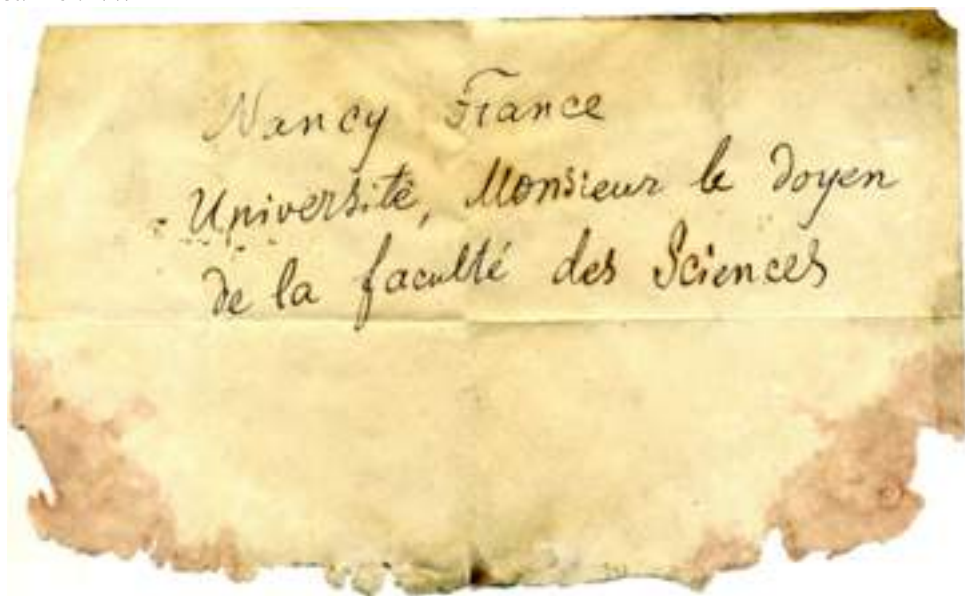 Nancy France
Université, Monsieur le Doyen
de la faculté des Sciences